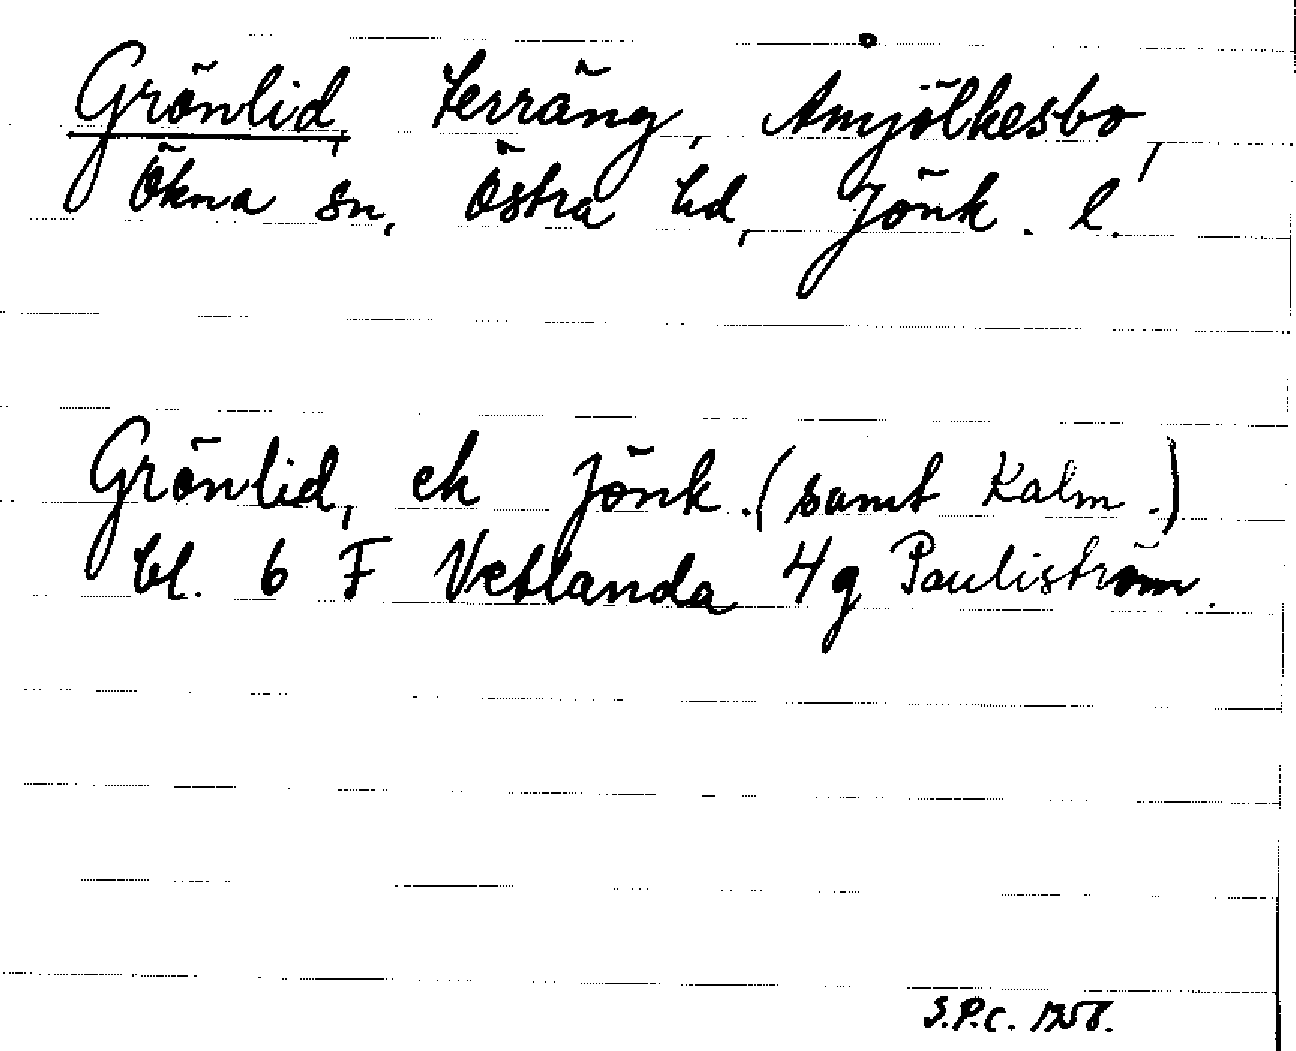 Grönlid, terräng, Åmjölkesbo,
Ökna sn, Östra hd, Jönk. l.
Grönlid, ek Jönk. (samt Kalm.)
bl. 6 F Vetlanda 4g Pauliström.
S.P.C. 1958.